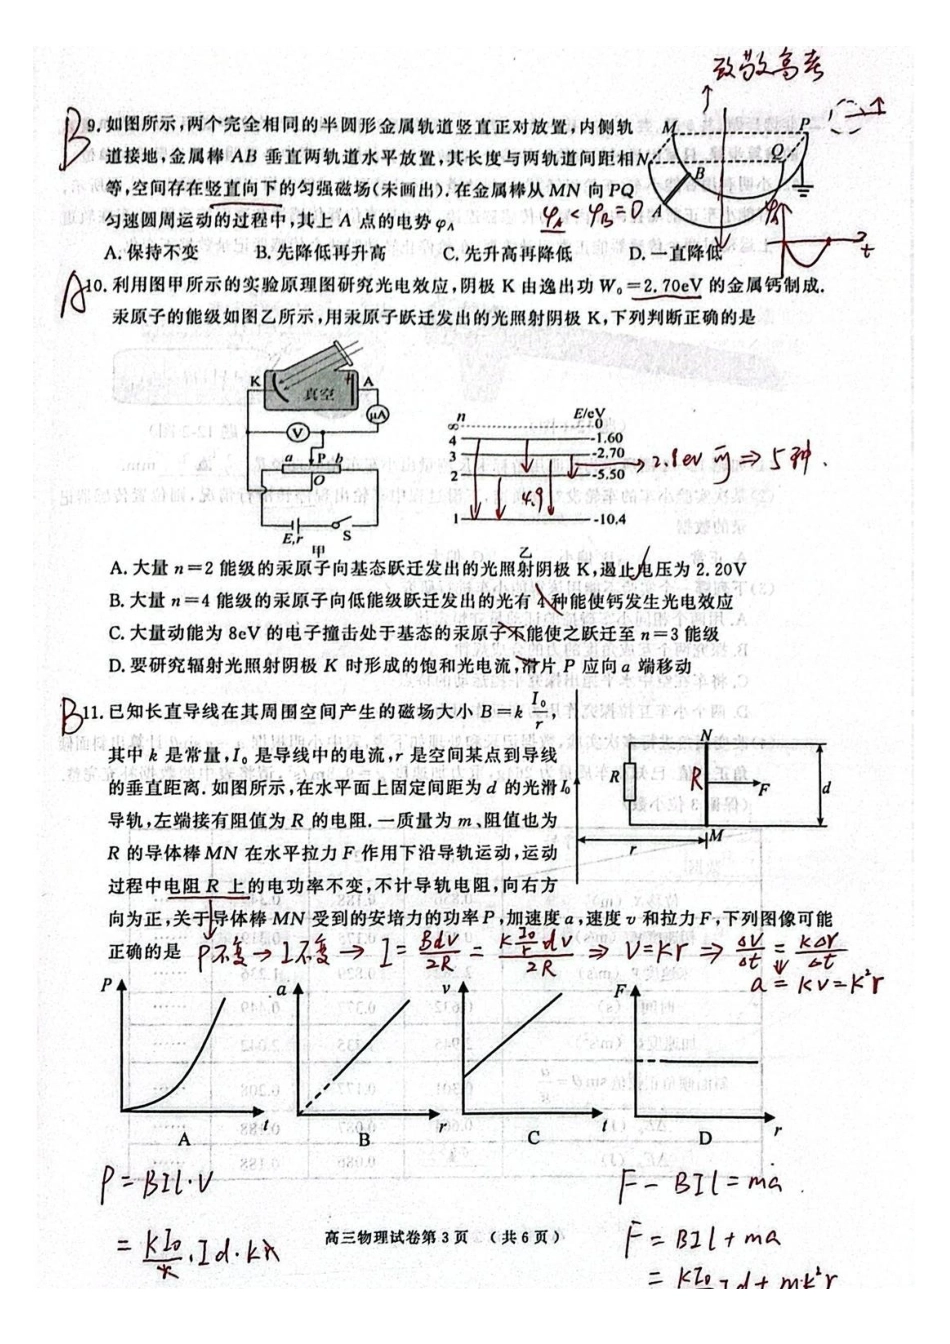 致敬高考
B 9. 如图所示,两个完全相同的半圆形金属轨道竖直正对放置,内侧轨
道接地,金属棒 AB 垂直两轨道水平放置,其长度与两轨道间距相
等,空间存在竖直向下的匀强磁场(未画出),在金属棒从 MN 向 PQ
匀速圆周运动的过程中,其上 A 点的电势 φA
M P
N Q
B
A
φA < φB = 0
φA
t
A. 保持不变 B. 先降低再升高 C. 先升高再降低 D. 一直降低
A 10. 利用图甲所示的实验原理图研究光电效应,阴极 K 由逸出功 W₀=2.70eV 的金属钙制成.
汞原子的能级如图乙所示,用汞原子跃迁发出的光照射阴极 K,下列判断正确的是
K A
真空
μA
V
a P b
O
E,r S
甲
n E/eV
∞ 0
4 -1.60
3 -2.70
2 -5.50
1 -10.4
乙
4.9
→ 2.8ev 可 ⇒ 5种.
A. 大量 n=2 能级的汞原子向基态跃迁发出的光照射阴极 K,遏止电压为 2.20V
B. 大量 n=4 能级的汞原子向低能级跃迁发出的光有 4 种能使钙发生光电效应
C. 大量动能为 8eV 的电子撞击处于基态的汞原子不能使之跃迁至 n=3 能级
D. 要研究辐射光照射阴极 K 时形成的饱和光电流,滑片 P 应向 a 端移动
B 11. 已知长直导线在其周围空间产生的磁场大小 B=k I₀/r,
其中 k 是常量,I₀ 是导线中的电流,r 是空间某点到导线
的垂直距离. 如图所示,在水平面上固定间距为 d 的光滑
导轨,左端接有阻值为 R 的电阻. 一质量为 m、阻值也为
R 的导体棒 MN 在水平拉力 F 作用下沿导轨运动,运动
过程中电阻 R 上的电功率不变,不计导轨电阻,向右方
向为正,关于导体棒 MN 受到的安培力的功率 P,加速度 a,速度 v 和拉力 F,下列图像可能
正确的是
N
I₀ R R F d
M
r
P不变 → I不变 → I = Bdv/2R = k I₀/r dv/2R ⇒ v=kr ⇒ Δv/Δt = kΔr/Δt
a = kv = k²r
P a v F
t r t r
A B C D
P = BIl·v
= kI₀/r · Id · kr
F - BIl = ma
F = BIl + ma
高三物理试卷第 3 页 (共 6 页)